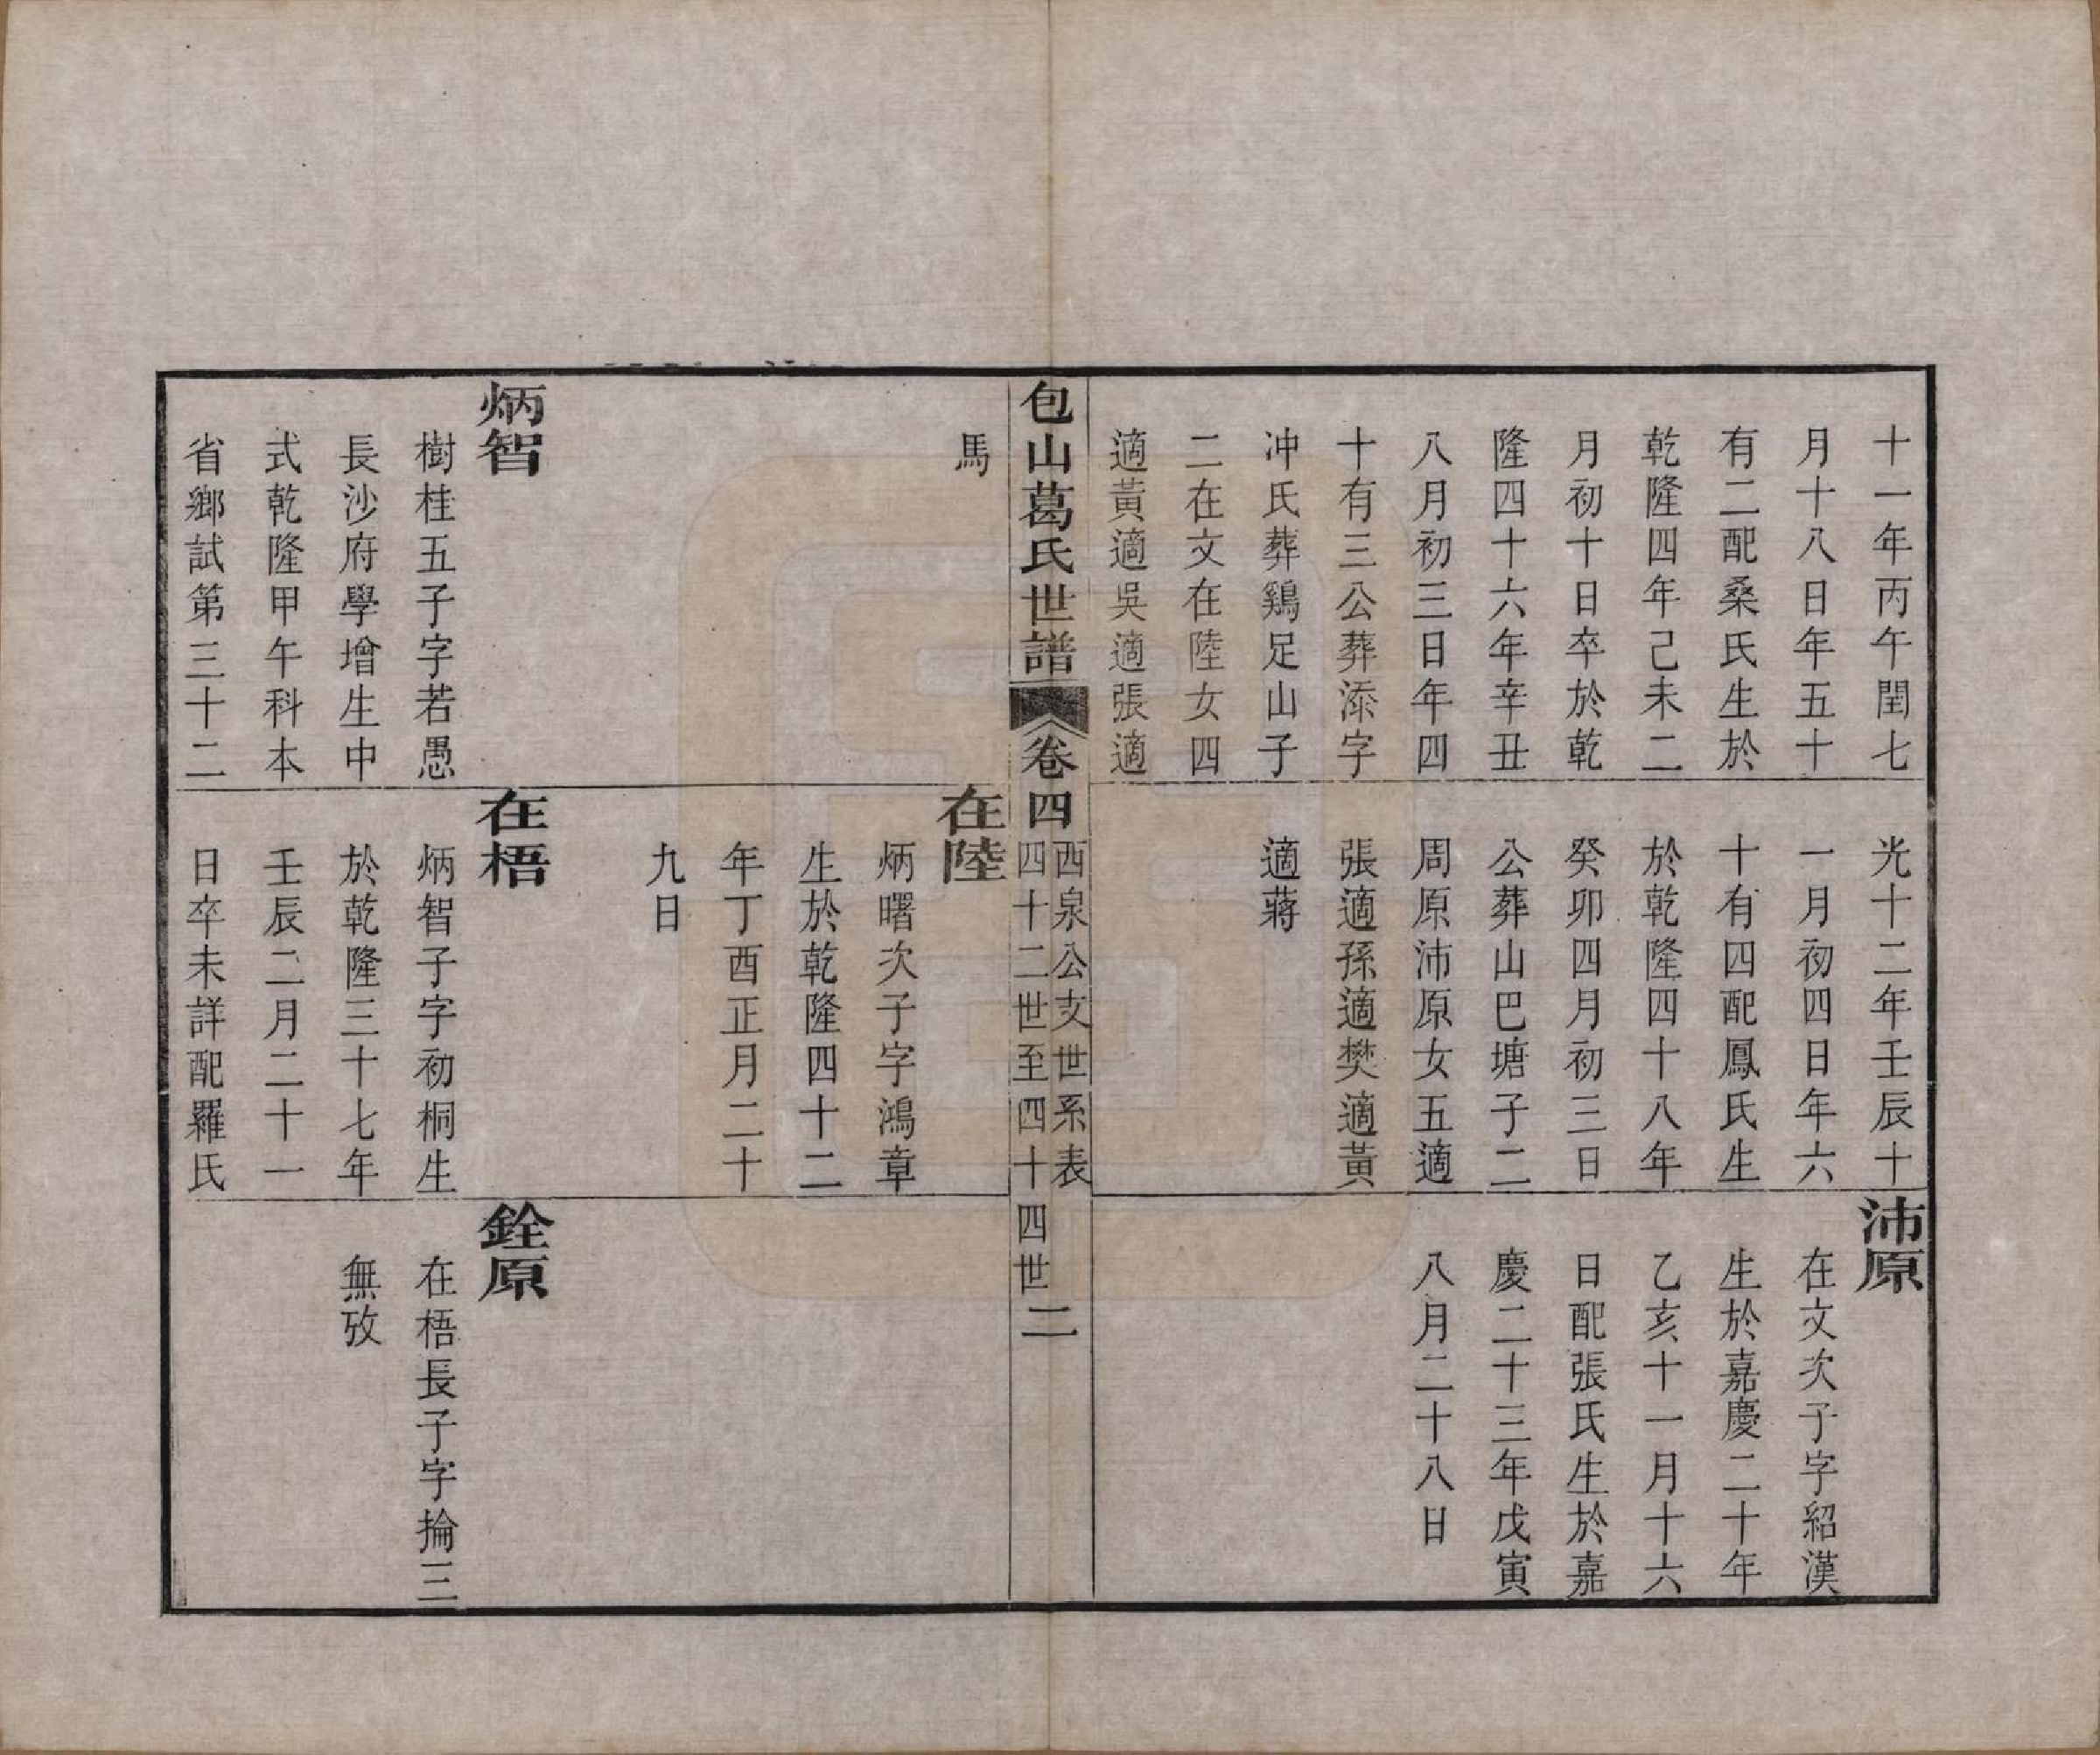 十一年丙午閏七
月十八日年五十
有二配桑氏生於
乾隆四年己未二
月初十日卒於乾
隆四十六年辛丑
八月初三日年四
十有三公葬添字
冲氏葬鷄足山子
二在文在陸女四
適黃適吳適張適
光十二年壬辰十
一月初四日年六
十有四配鳳氏生
於乾隆四十八年
癸卯四月初三日
公葬山巴塘子二
周原沛原女五適
張適孫適樊適黃
適蔣
沛原
在文次子字紹漢
生於嘉慶二十年
乙亥十一月十六
日配張氏生於嘉
慶二十三年戊寅
八月二十八日
包山葛氏世譜
卷四
西泉公支世系表
四十二世至四十四世
二
馬
炳智
樹桂五子字若愚
長沙府學增生中
式乾隆甲午科本
省鄉試第三十二
在陸
炳曙次子字鴻章
生於乾隆四十二
年丁酉正月二十
九日
在梧
炳智子字初桐生
於乾隆三十七年
壬辰二月二十一
日卒未詳配羅氏
銓原
在梧長子字掄三
無攷